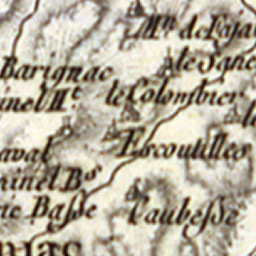 Mⁿ de Fajal
le Sanc
Barignac
inel Hᵗ
le Colombier
le
aval
Escoutilles
rinel Bˢ
ne Baſſe
Caubeſſe
mas